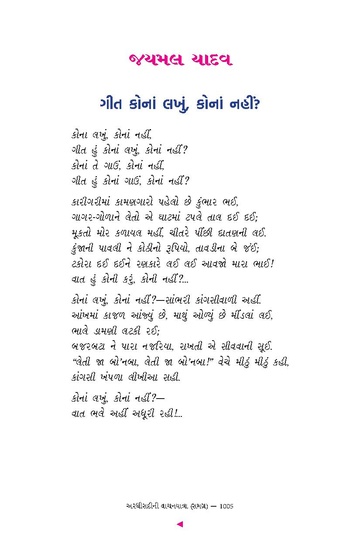 જયમલ યાદવ
ગીત કોનાં લખું, કોનાં નહીં?
કોના લખું, કોનાં નહીં,
ગીત હું કોનાં લખું, કોનાં નહીં?
કોનાં તે ગાઉં, કોનાં નહીં,
ગીત હું કોનાં ગાઉં, કોનાં નહીં?
કારીગરીમાં કામણગારો પહેલો છે કુંભાર ભઈ.
ગાગર-ગોળાને લેતો એ ઘાટમાં ટપલે તાલ દઈ દઈ;
મૂકતો મોર કળાયલ મહીં, ચીતરે પીંછી દાતણની લઈ.
કુંજાની પાવલી ને કોઠીનો રૂપિયો, તાવડીના બે જઈ;
ટકોરા દઈ દઈને રણકારે લઈ લઈ આવજો મારા ભાઈ!
વાત હું કોની કરું, કોની નહીં?...
કોનાં લખું, કોનાં નહીં?—સાંભરી કાંગસીવાળી અહીં.
આંખમાં કાજળ આંજ્યું છે, માથું ઓળ્યું છે મીંડલાં લઈ.
ભાલે ડામણી લટકી રઈ;
બજરબટા ને પારા નજરિયા, રાખતી એ સીવવાની સૂઈ.
“લેતી જા બો'નબા, લેતી જા બો'નબા!” વેચે મીઠું મીઠું કહી,
કાંગસી ખંપળા લીખીઆ સહી.
કોનાં લખું, કોનાં નહીં?—
વાત ભલે અહીં અધૂરી રહી!...
અરધીસદીની વાચનયાત્રા (સમગ્ર) — 1005